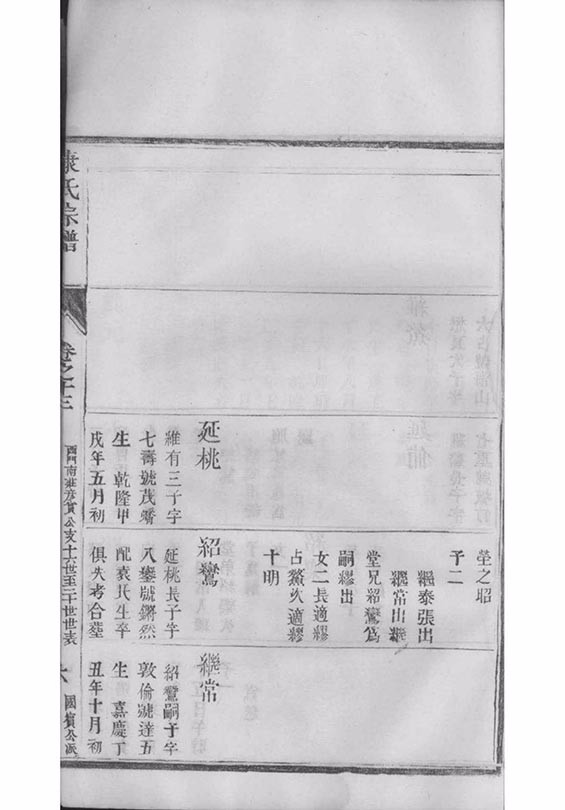 塋之昭
子二
繼泰張出
繼常出繼
堂兄紹鸞爲
嗣繆出
女二長適繆
占鰲次適繆
十明
延桃
維有三子字
七壽號茂齋
生 乾隆甲
戌年五月初
紹鸞
延桃長子字
八鑾號鏘然
配袁氏生卒
俱失考合塋
繼常
紹鸞嗣子字
敦倫號達五
生 嘉慶丁
丑年十月初
康氏宗譜
卷之十三
公支十六世至二十世世表
六
國賓公派